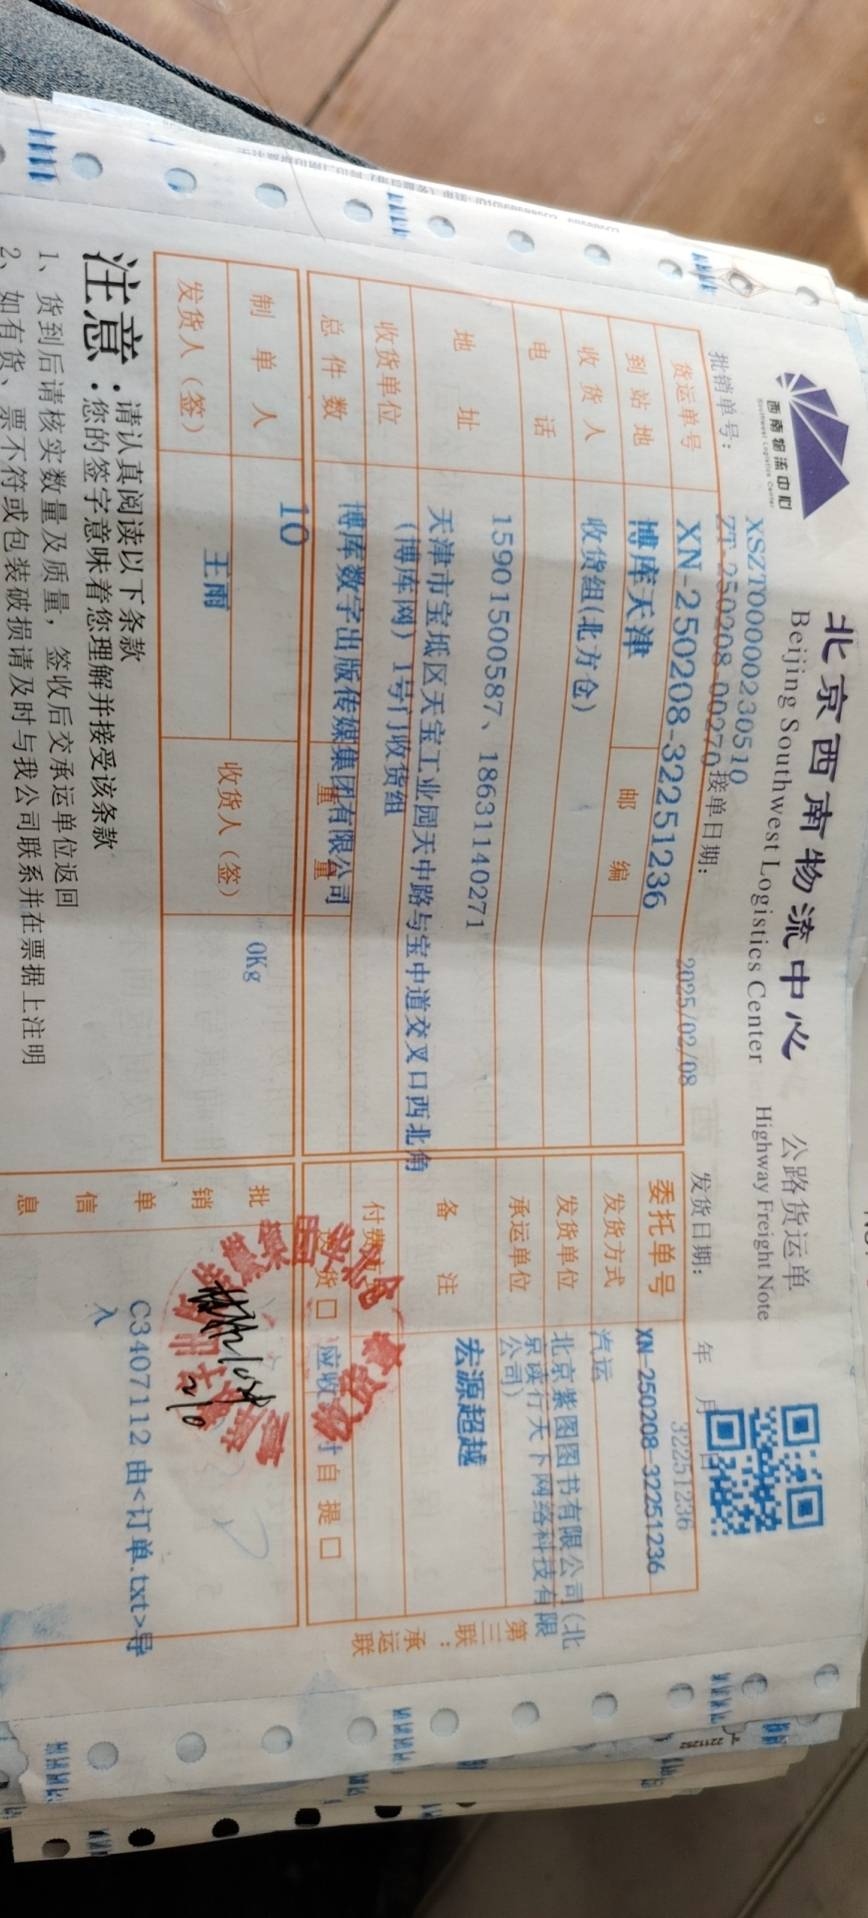 西南物流中心
Southwest Logistics Center
北京西南物流中心
Beijing Southwest Logistics Center
公路货运单
Highway Freight Note
XSZT0000230510
批销单号:
ZT-250208-00270
接单日期:
2025/02/08
发货日期:
年 月 日
32251236
货运单号
XN-250208-32251236
委托单号
XN-250208-32251236
到站地
博库天津
邮编
发货方式
汽运
收货人
收货组(北方仓)
发货单位
北京紫图图书有限公司(北
京读行天下网络科技有限
公司)
电话
15901500587、18631140271
承运单位
宏源超越
地址
天津市宝坻区天宝工业园天中路与宝中道交叉口西北角
(博库网)1号门收货组
备注
收货单位
博库数字出版传媒集团有限公司
总件数
10
重量
0Kg
货口
应收
自提口
制单人
王雨
发货人(签)
收货人(签)
批销单信息
C3407112 由<订单.txt>导
入
第三联:承运联
注意:
请认真阅读以下条款
您的签字意味着您理解并接受该条款
1、货到后请核实数量及质量,签收后交承运单位返回
2、如有货、票不符或包装破损请及时与我公司联系并在票据上注明